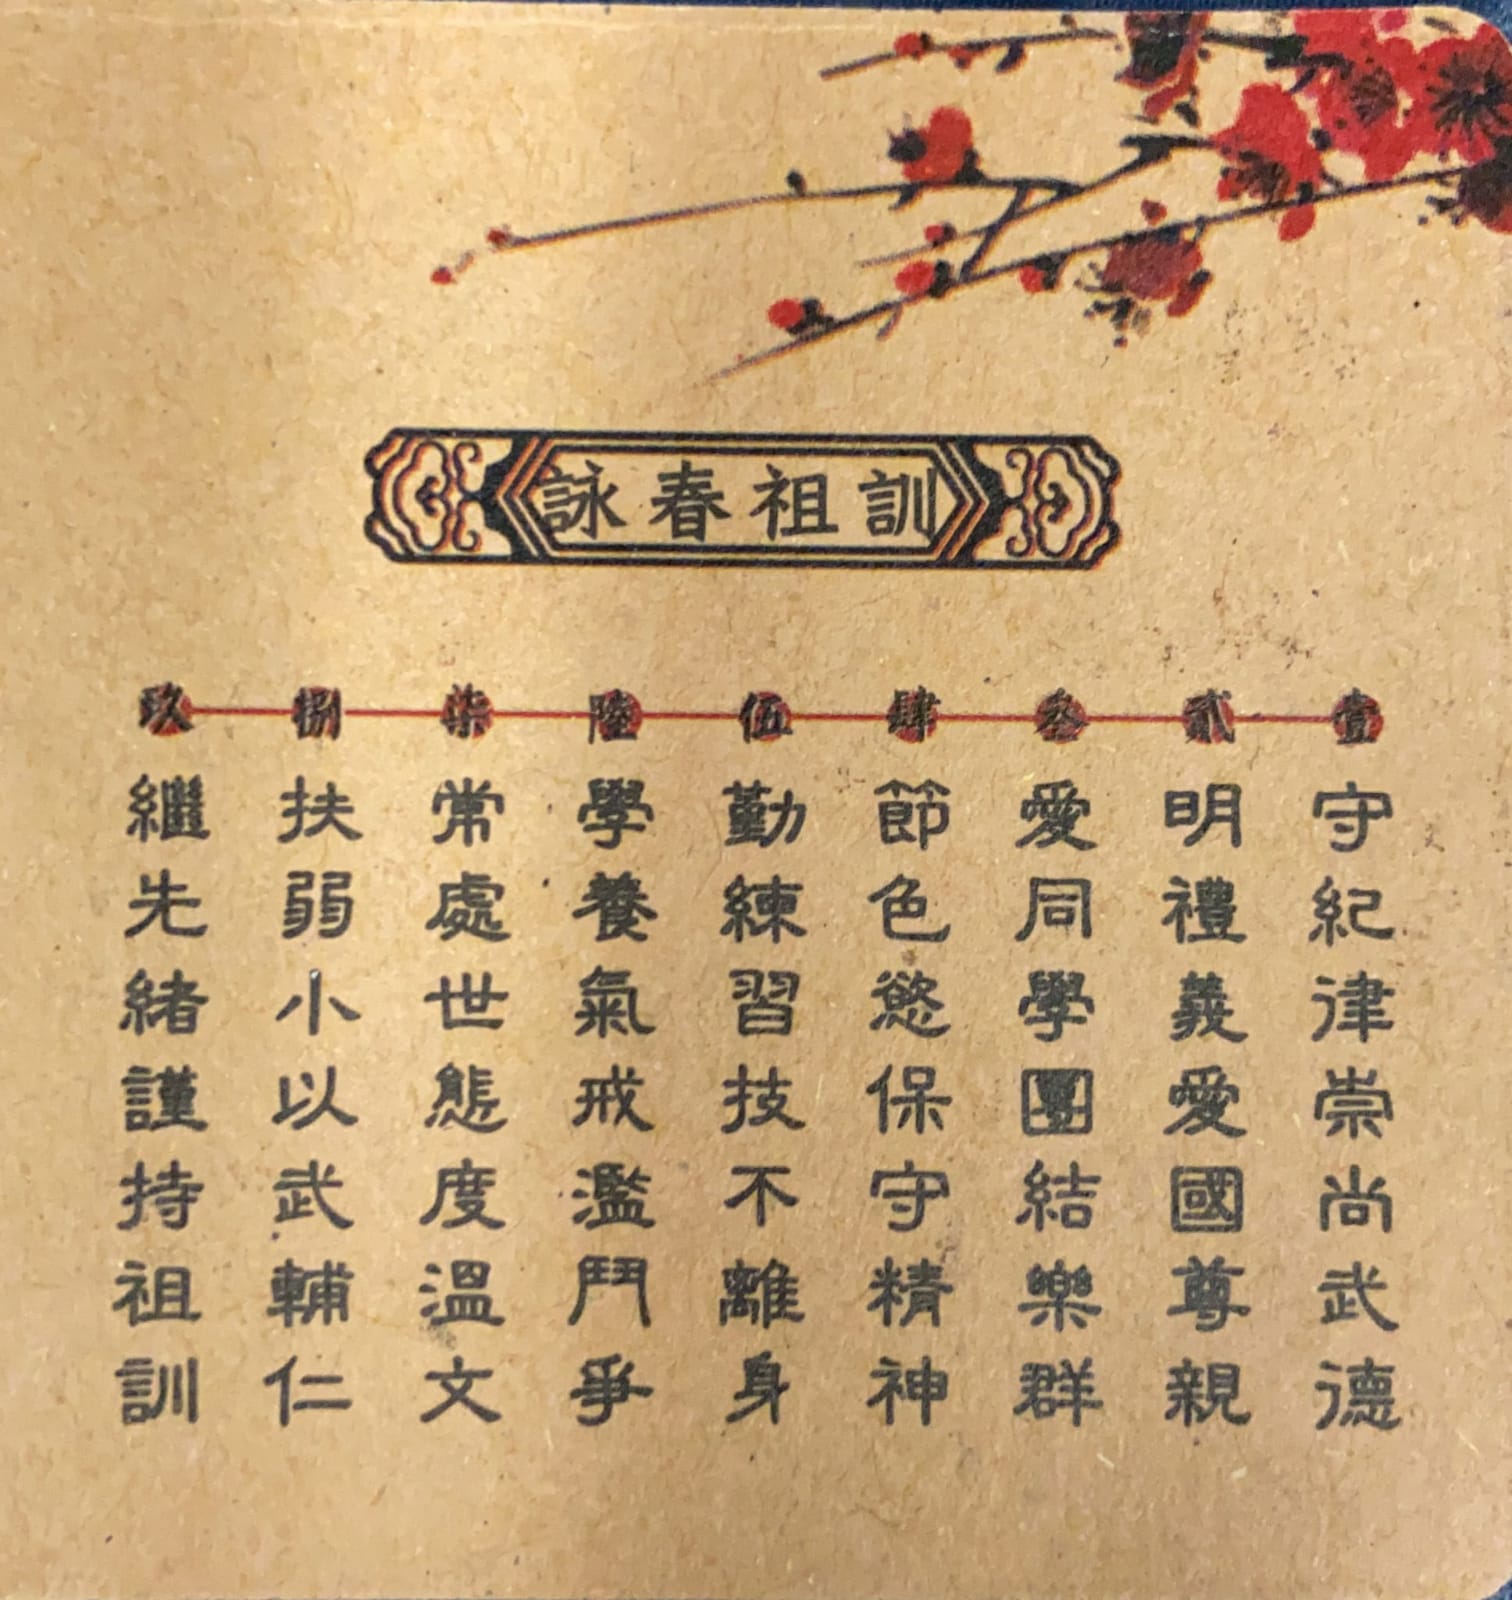 詠春祖訓
壹 守紀律崇尚武德
貳 明禮義愛國尊親
叄 愛同學團結樂群
肆 節色慾保守精神
伍 勤練習技不離身
陸 學養氣戒濫鬥爭
柒 常處世態度溫文
捌 扶弱小以武輔仁
玖 繼先緒謹持祖訓